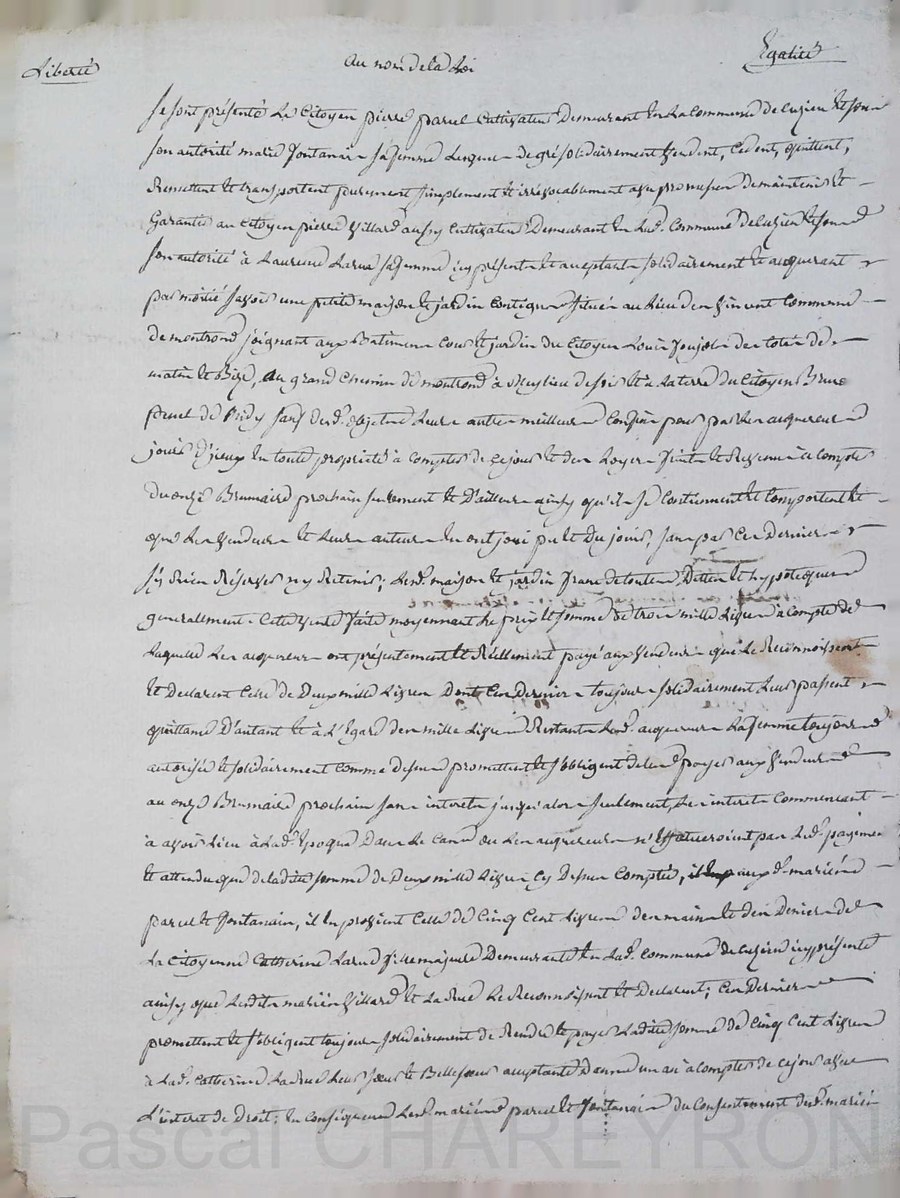 Liberté
Au nom de la Loi
Egalité
Se sont présenté Le Citoyen pierre parcel Cultivateur Demeurant En La Commune de Cuzieu Et sous
son autorité marie fontanai sa femme Lesquels de gré solidairement Vendent, Cedent, quittent,
Remettent Et transportent purement simplement Et irrévocablement avec promesse de maintenir Et
Garantir au Citoyen pierre Villard aussy Cultivateur Demeurant En Lad. Commune de Cuzieu Et sous
son autorité à Laurence Larue sa femme icy présents Et acceptants solidairement Et acquerant
par moitié savoir une petite maison Et jardin Contigus Situés au Lieu de Vincent Commune
de montrond joignant aux Batimens Cour Et jardin du Citoyen Louis Joujot des cotés de
matin Et Bize, Au grand Chemin de montrond à Meylieu de soir Et à La terre du Citoyen
de midy sauf desd. objets Leurs autres meilleurs Confins pour par Les acquereurs
jouir D'jceux En toute propriété à Compter de Ce jour Et des Loyers fruits Et Revenus à Compter
Du onze Brumaire prochain seulement Et D'ailleurs ainsy qu'ils se Contiennent Et Comportent Et
que Les Vendeurs Et Leurs auteurs En ont joui pu Et dû jouir, sans par Ces Derniers
S'y Rien Réserver ny Retenir; Lesd. maison Et jardin francs de toutes Dettes Et hypotecques
generallement. Cette Vente faite moyennant Le prix Et somme de trois mille Livres à Compte de
Laquelle Les acquereurs ont présentement Et Réellement payé aux Vendeurs qui Le Reconnoissent
Et Declarent Celle de Deux mille Livres Dont Ces Derniers toujours solidairement Leurs passent
quittance D'autant Et à L'Egard des mille Livres Restants Lesd. acquereurs La femme toujours
autorisée Et solidairement Comme dessus promettent Et s'obligent de Les payer aux Vendeurs
au onze Brumaire prochain sans interets jusqu'alors seulement, Les interets Commencant
à avoir Lieu à Lad. Epoque Dans Le Cas où Les acquereurs n'Effectueroient pas Led. payement
Et attendu que de Ladite somme de Deux mille Livres Cy Dessus Comptée, aux d. mariés
parcel Et fontanai, il En provient Celle de Cinq Cent Livres des mains Et des Deniers de
La Citoyenne Catherine Larue fille majeure Demeurante En Lad. Commune de Cuzieu icy présente
ainsy que Lesdits mariés Villard Et La Rue Le Reconnoissent Et Declarent; Ces Derniers
promettent Et s'obligent toujours solidairement de Rendre Et payer Ladite somme de Cinq Cent Livres
à Lad. Catherine La Rue Leur sœur Et Belle sœur acceptante Dans un an à Compter de Ce jour avec
L'interet de Droit; En Conséquence Lesd. mariés parcel Et fontanai Du Consentement Desd. mariés
Pascal CHAREYRON